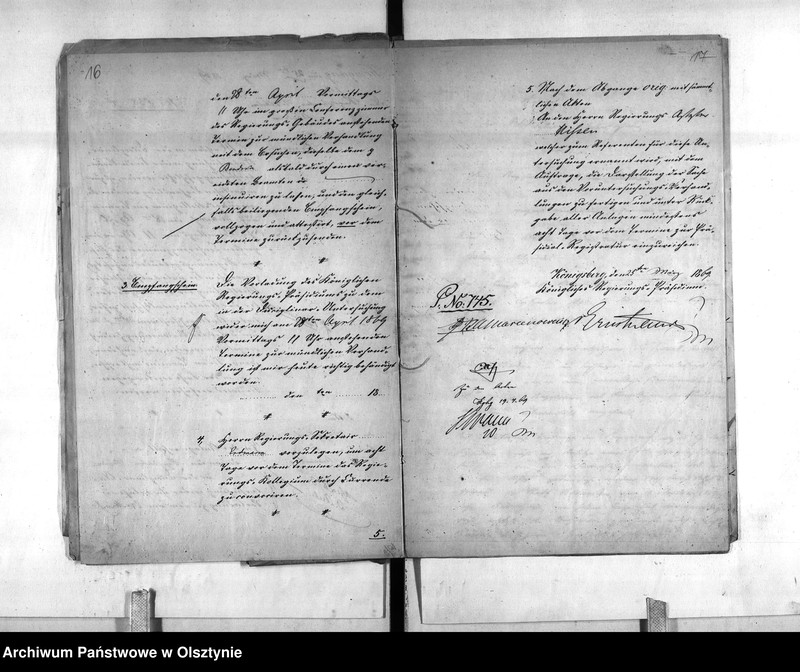 16
den 28ten April Vormittags
11 Uhr im großen Conferenzzimmer
des Regierungs-Gebäudes anstehenden
Termine zur mündlichen Verhandlung
mit dem Ersuchen, dieselbe dem p
alsbald durch einen ver-
eideten Beamten
insinuiren zu lassen, und den gleich-
falls beiliegenden Empfangschein,
vollzogen und attestirt, vor dem
Termine zurückzusenden.
3. Empfangschein.
Die Vorladung des Königlichen
Regierungs-Präsidiums zu dem
in der Disciplinar-Untersuchung
wider mich am 28ten April 1869
Vormittags 11 Uhr anstehenden
Termine zur mündlichen Verhand-
lung ist mir heute richtig behändigt
worden.
den ten 18
4. Herrn Regierungs-Secretair
vorzulegen, um acht
Tage vor dem Termine das Regie-
rungs-Kollegium durch Currende
zu convociren.
5.
17
5. Nach dem Abgange orig. mit sämmt-
lichen Akten
An den Herrn Regierungs Assessor
welcher zum Referenten für diese Un-
tersuchung ernannt wird, mit dem
Auftrage, die Darstellung der Sache
aus den Voruntersuchungs-Verhand-
lungen zu fertigen und unter Rück-
gabe aller Anlagen mindestens
acht Tage vor dem Termine zur Prä-
sidial-Registratur einzureichen.
Königsberg, den 5ten März 1869
Königliches Regierungs-Präsidium.
P. No. 745.
Archiwum Państwowe w Olsztynie